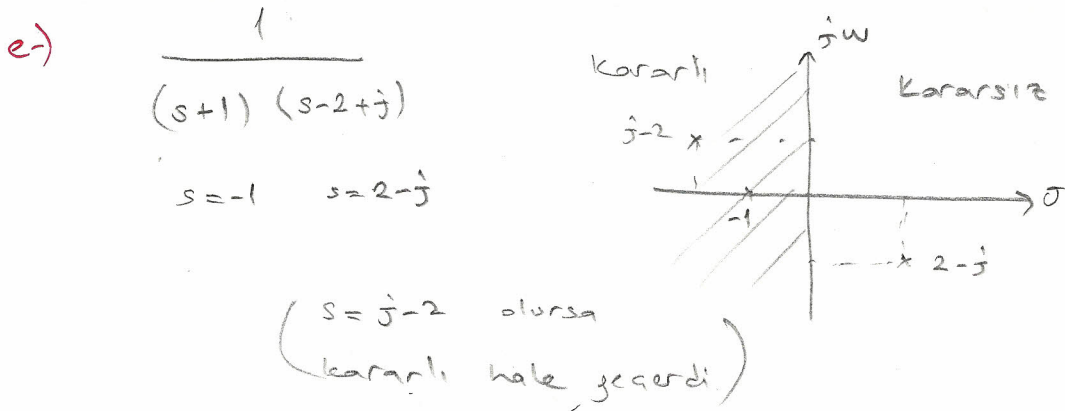 e-)
1
(s+1) (s-2+j)
s = -1 s = 2-j
jw
Kararlı
Kararsız
j-2
-1
σ
2-j
( s = j-2 olursa
kararlı hale geçerdi )